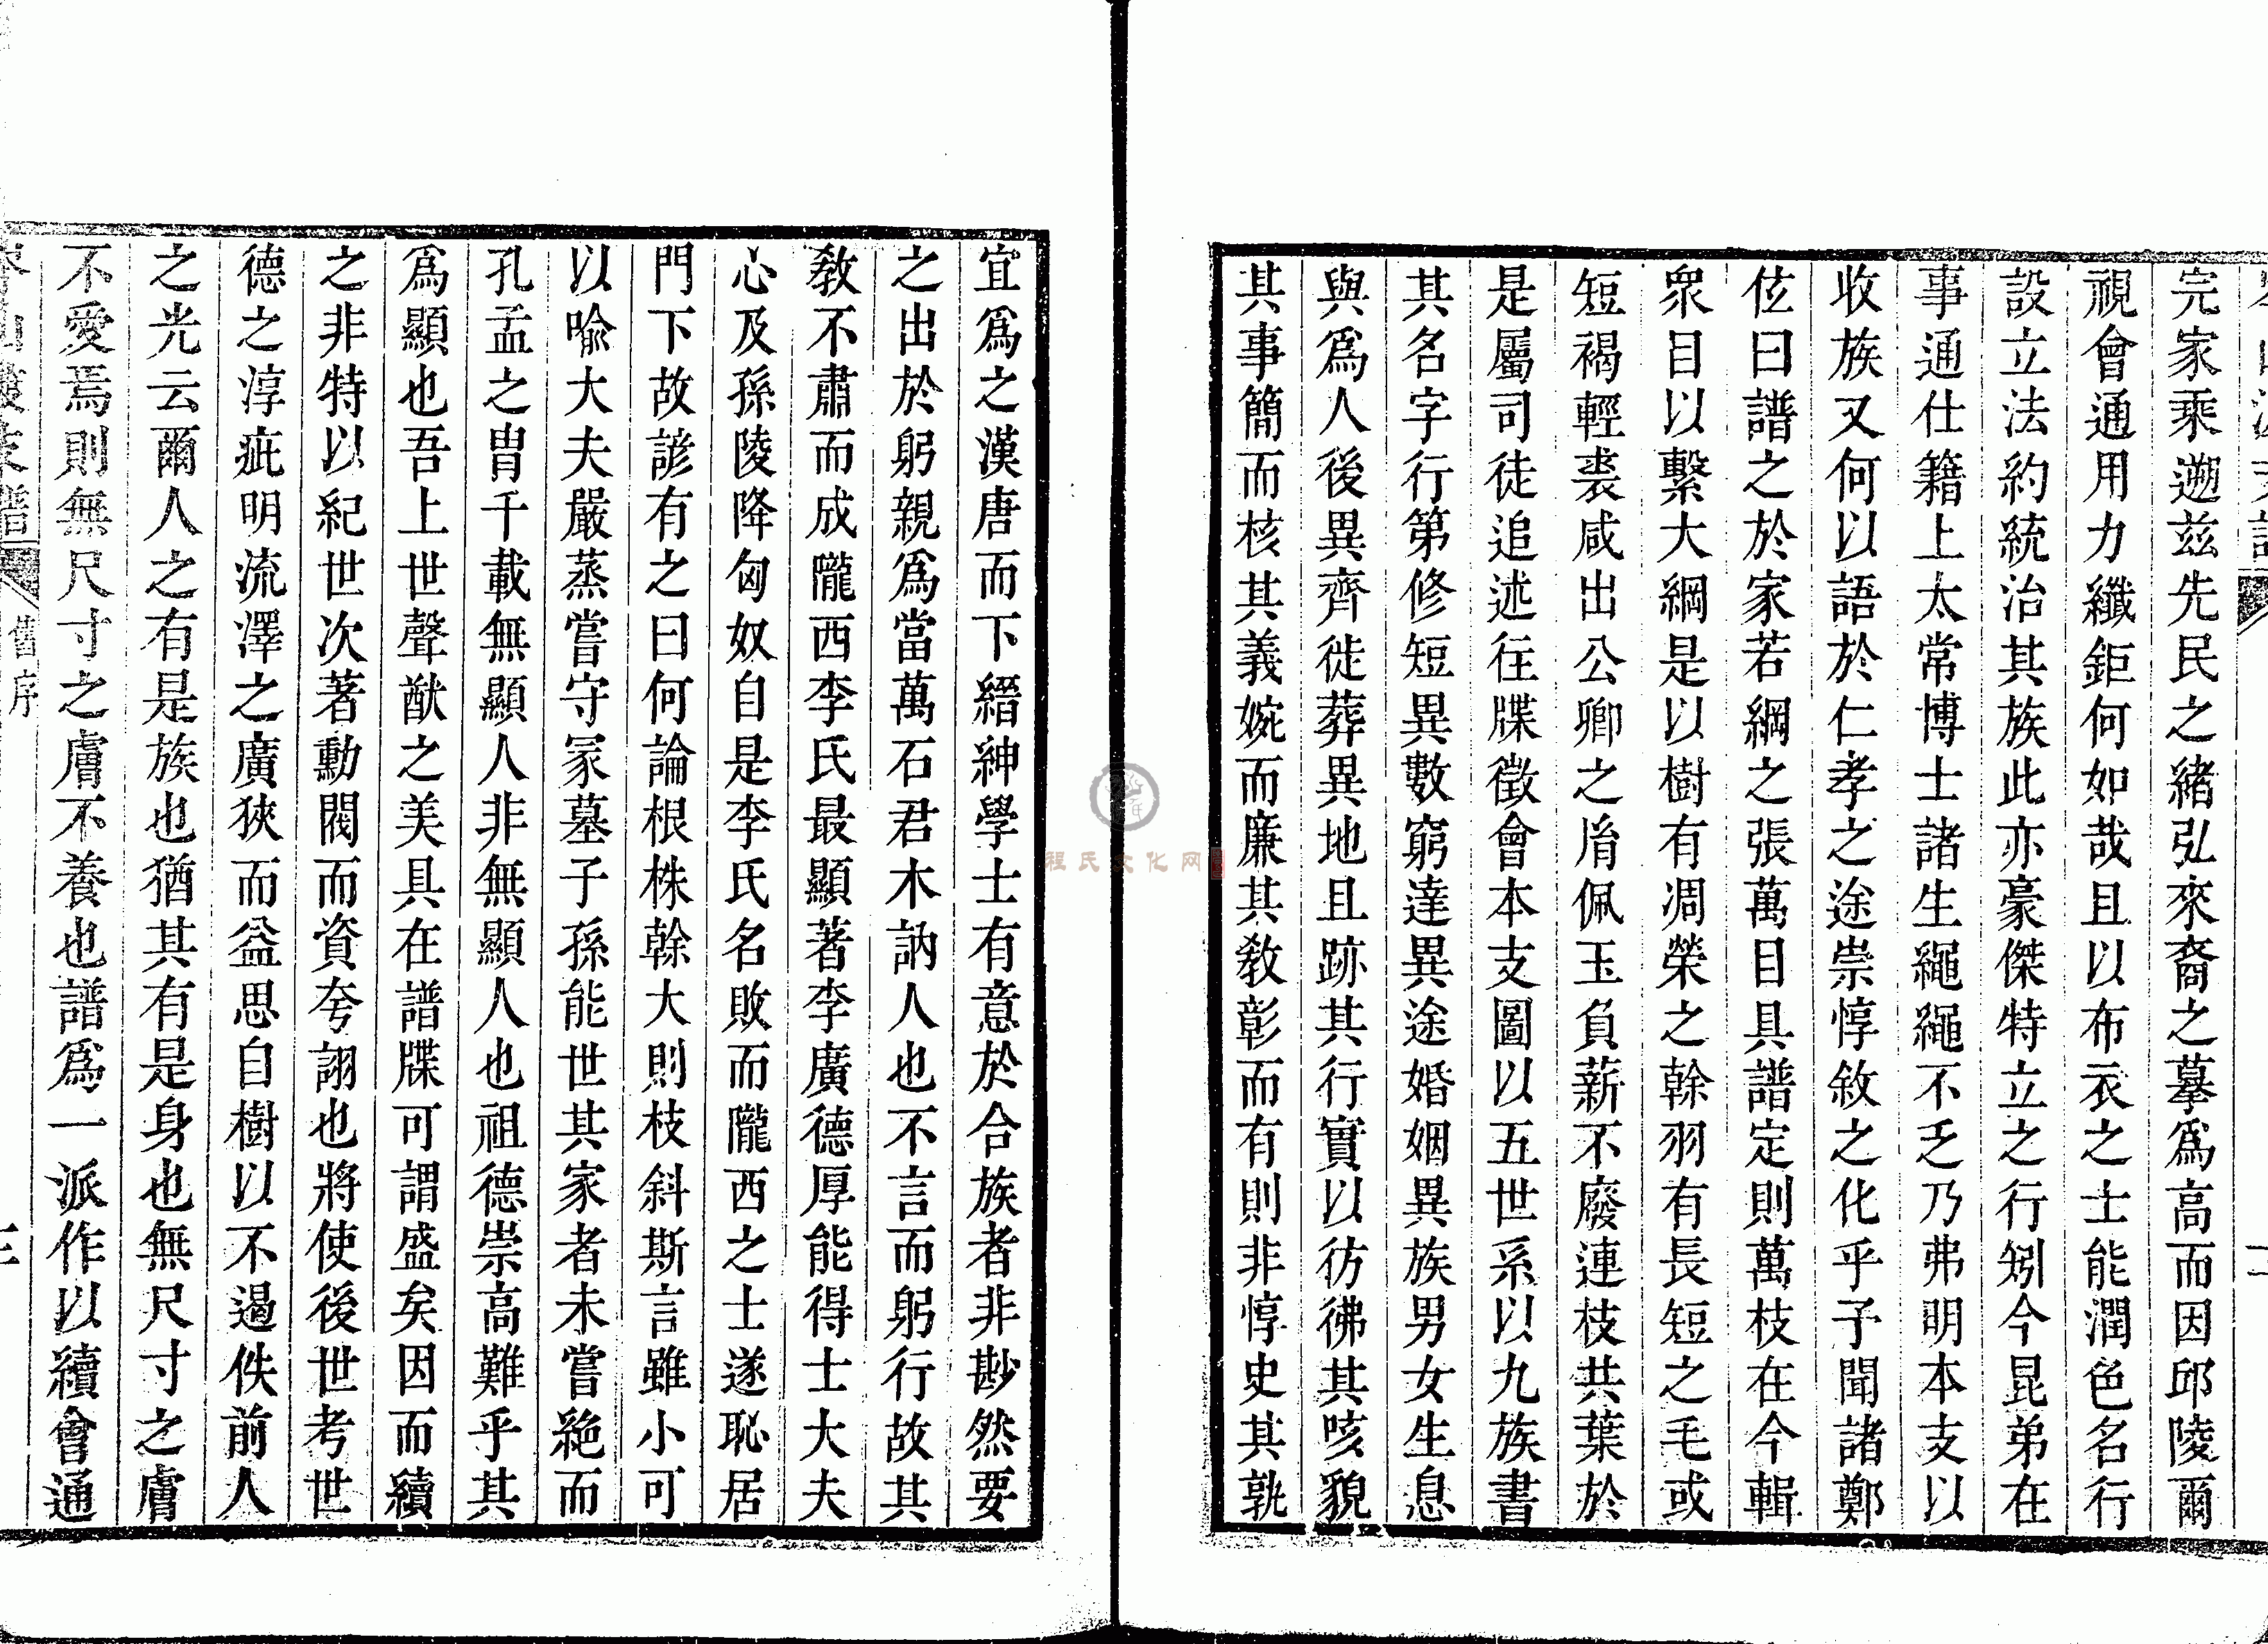 完家乘遡茲先民之緒弘來裔之摹爲高而因邱陵爾
視會通用力纖鉅何如哉且以布衣之士能潤色名行
設立法約統治其族此亦豪傑特立之行矧今昆弟在
事通仕籍上太常博士諸生繩繩不乏乃弗明本支以
收族又何以語於仁孝之途崇惇敘之化乎予聞諸鄭
伭曰譜之於家若綱之張萬目具譜定則萬枝在今輯
衆目以繫大綱是以樹有凋榮之榦羽有長短之毛或
短褐輕裘咸出公卿之胄佩玉負薪不廢連枝共葉於
是屬司徒追述往牒徵會本支圖以五世系以九族書
其名字行第修短異數窮達異途婚姻異族男女生息
與爲人後異齊徙葬異地且跡其行實以彷彿其咳貌
其事簡而核其義婉而廉其教彰而有則非惇史其孰
宜爲之漢唐而下縉紳學士有意於合族者非尠然要
之出於躬親爲當萬石君木訥人也不言而躬行故其
教不肅而成隴西李氏最顯著李廣德厚能得士大夫
心及孫陵降匈奴自是李氏名敗而隴西之士遂恥居
門下故諺有之曰何論根株榦大則枝斜斯言雖小可
以喻大夫嚴蒸嘗守冢墓子孫能世其家者未嘗絕而
孔孟之冑千載無顯人非無顯人也祖德崇高難乎其
爲顯也吾上世聲猷之美具在譜牒可謂盛矣因而續
之非特以紀世次著勳閥而資夸詡也將使後世考世
德之淳疵明流澤之廣狹而益思自樹以不遏佚前人
之光云爾人之有是族也猶其有是身也無尺寸之膚
不愛焉則無尺寸之膚不養也譜爲一派作以續會通
舊序
三
程氏文化网